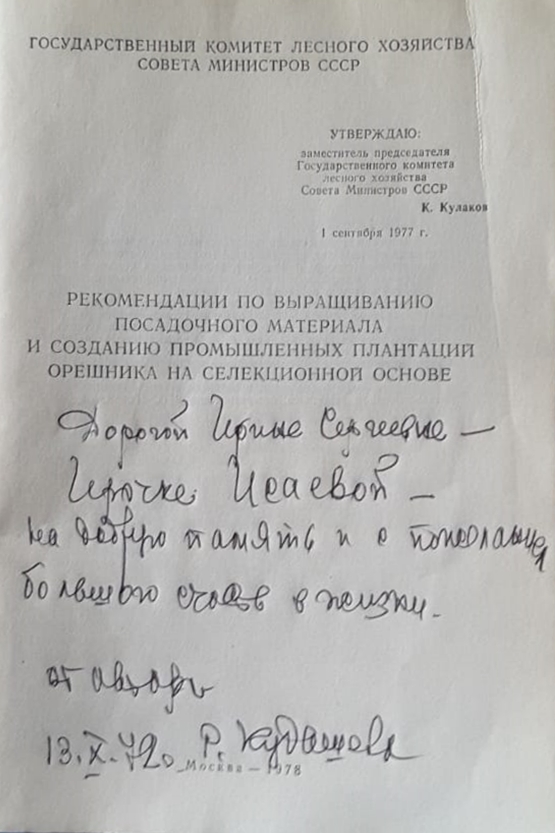 ГОСУДАРСТВЕННЫЙ КОМИТЕТ ЛЕСНОГО ХОЗЯЙСТВА
СОВЕТА МИНИСТРОВ СССР
УТВЕРЖДАЮ:
заместитель председателя
Государственного комитета
лесного хозяйства
Совета Министров СССР
К. Кулаков
1 сентября 1977 г.
РЕКОМЕНДАЦИИ ПО ВЫРАЩИВАНИЮ
ПОСАДОЧНОГО МАТЕРИАЛА
И СОЗДАНИЮ ПРОМЫШЛЕННЫХ ПЛАНТАЦИЙ
ОРЕШНИКА НА СЕЛЕКЦИОННОЙ ОСНОВЕ
Дорогой Ирине Сергеевне —
Ирочке Исаевой —
на добрую память и с
большого счастья в жизни.
от автора
13.X. Р. Кудашева
Москва — 1978